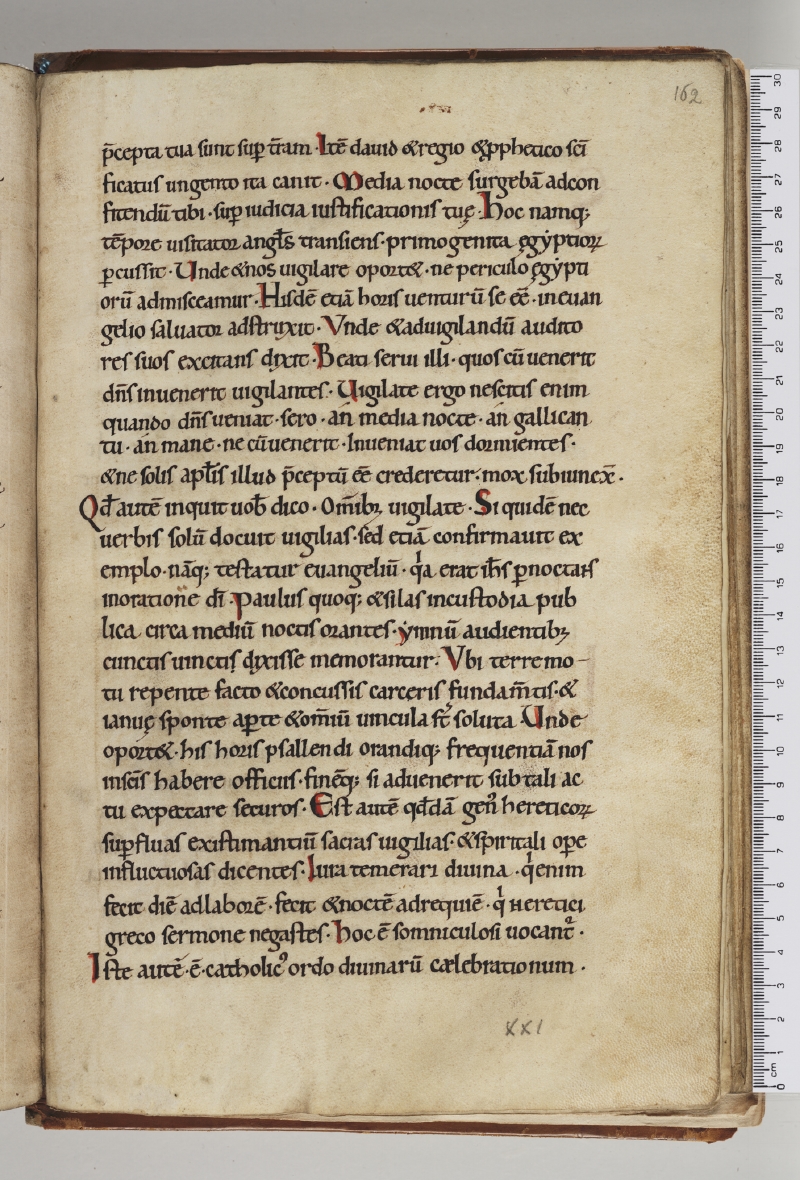 162
p̄cepta tua sunt sup̱ t̄ram. Itē dauid & regio & p̱phetico sc̄i
ficatus ungento ita canit. Media nocte surgebā ad con
fitendū tibi. sup̱ iudicia iustificationis tuę. Hoc namq;
tēpore uisitator angl̄s transiens. primogenita ęgyptioꝝ
p̱cussit. Unde & nos uigilare oport&. ne periculo ęgypti
orū admisceamur. Hisdē etiā horis uenturū se eē. in euan
gelio saluator adstruxit. Vnde & aduigilandū audito
res suos excitans dixit. Beati serui illi. quos cū uenerit
dn̄s inuenerit uigilantes. Uigilate ergo nescitis enim
quando dn̄s ueniat. sero. an media nocte. an gallican
tu. an mane. ne cū uenerit. Inueniat uos dormientes.
& ne solis apl̄is illud p̄ceptū eē crederetur. mox subiunex̄.
Qđ autē inquit uob̄ dico. Om̄ibꝫ uigilate. Si quidē nec
uerbis solū docuit uigilias. sed etiā confirmauit ex
emplo. nāq; testatur euangeliū. qa erat ih̄s p̱noctans
in oratione dī. Paulus quoq; & silas in custodia pub
lica circa mediū noctis orantes. ymnū audientibꝫ
cunctis uinctis dixisse memorantur. Vbi terremo-
tu repente facto & concussis carceris fundam̄tis. &
ianuę sponte ap̱te & om̄iū uincula st̄ soluta. Unde
oport&. his horis psallendi orandiq; frequentiā nos
in scīs habere officiis. finēq; si aduenerit sub tali ac
tu expectare securos. Est autē qđdā genꝰ hereticoꝝ
sup̱fluas existimantiū sacras uigilias. & sp̄iritali op̱e
influctuosas dicentes. Iura temerari diuina. qi enim
fecit diē ad laborē. fecit & noctē ad requiē. qi heretici
greco sermone negastes. hoc ē somniculosi uocant̄.
Iste autē. ē. catholicꝰ ordo diuinarū cælebrationum.
XXI